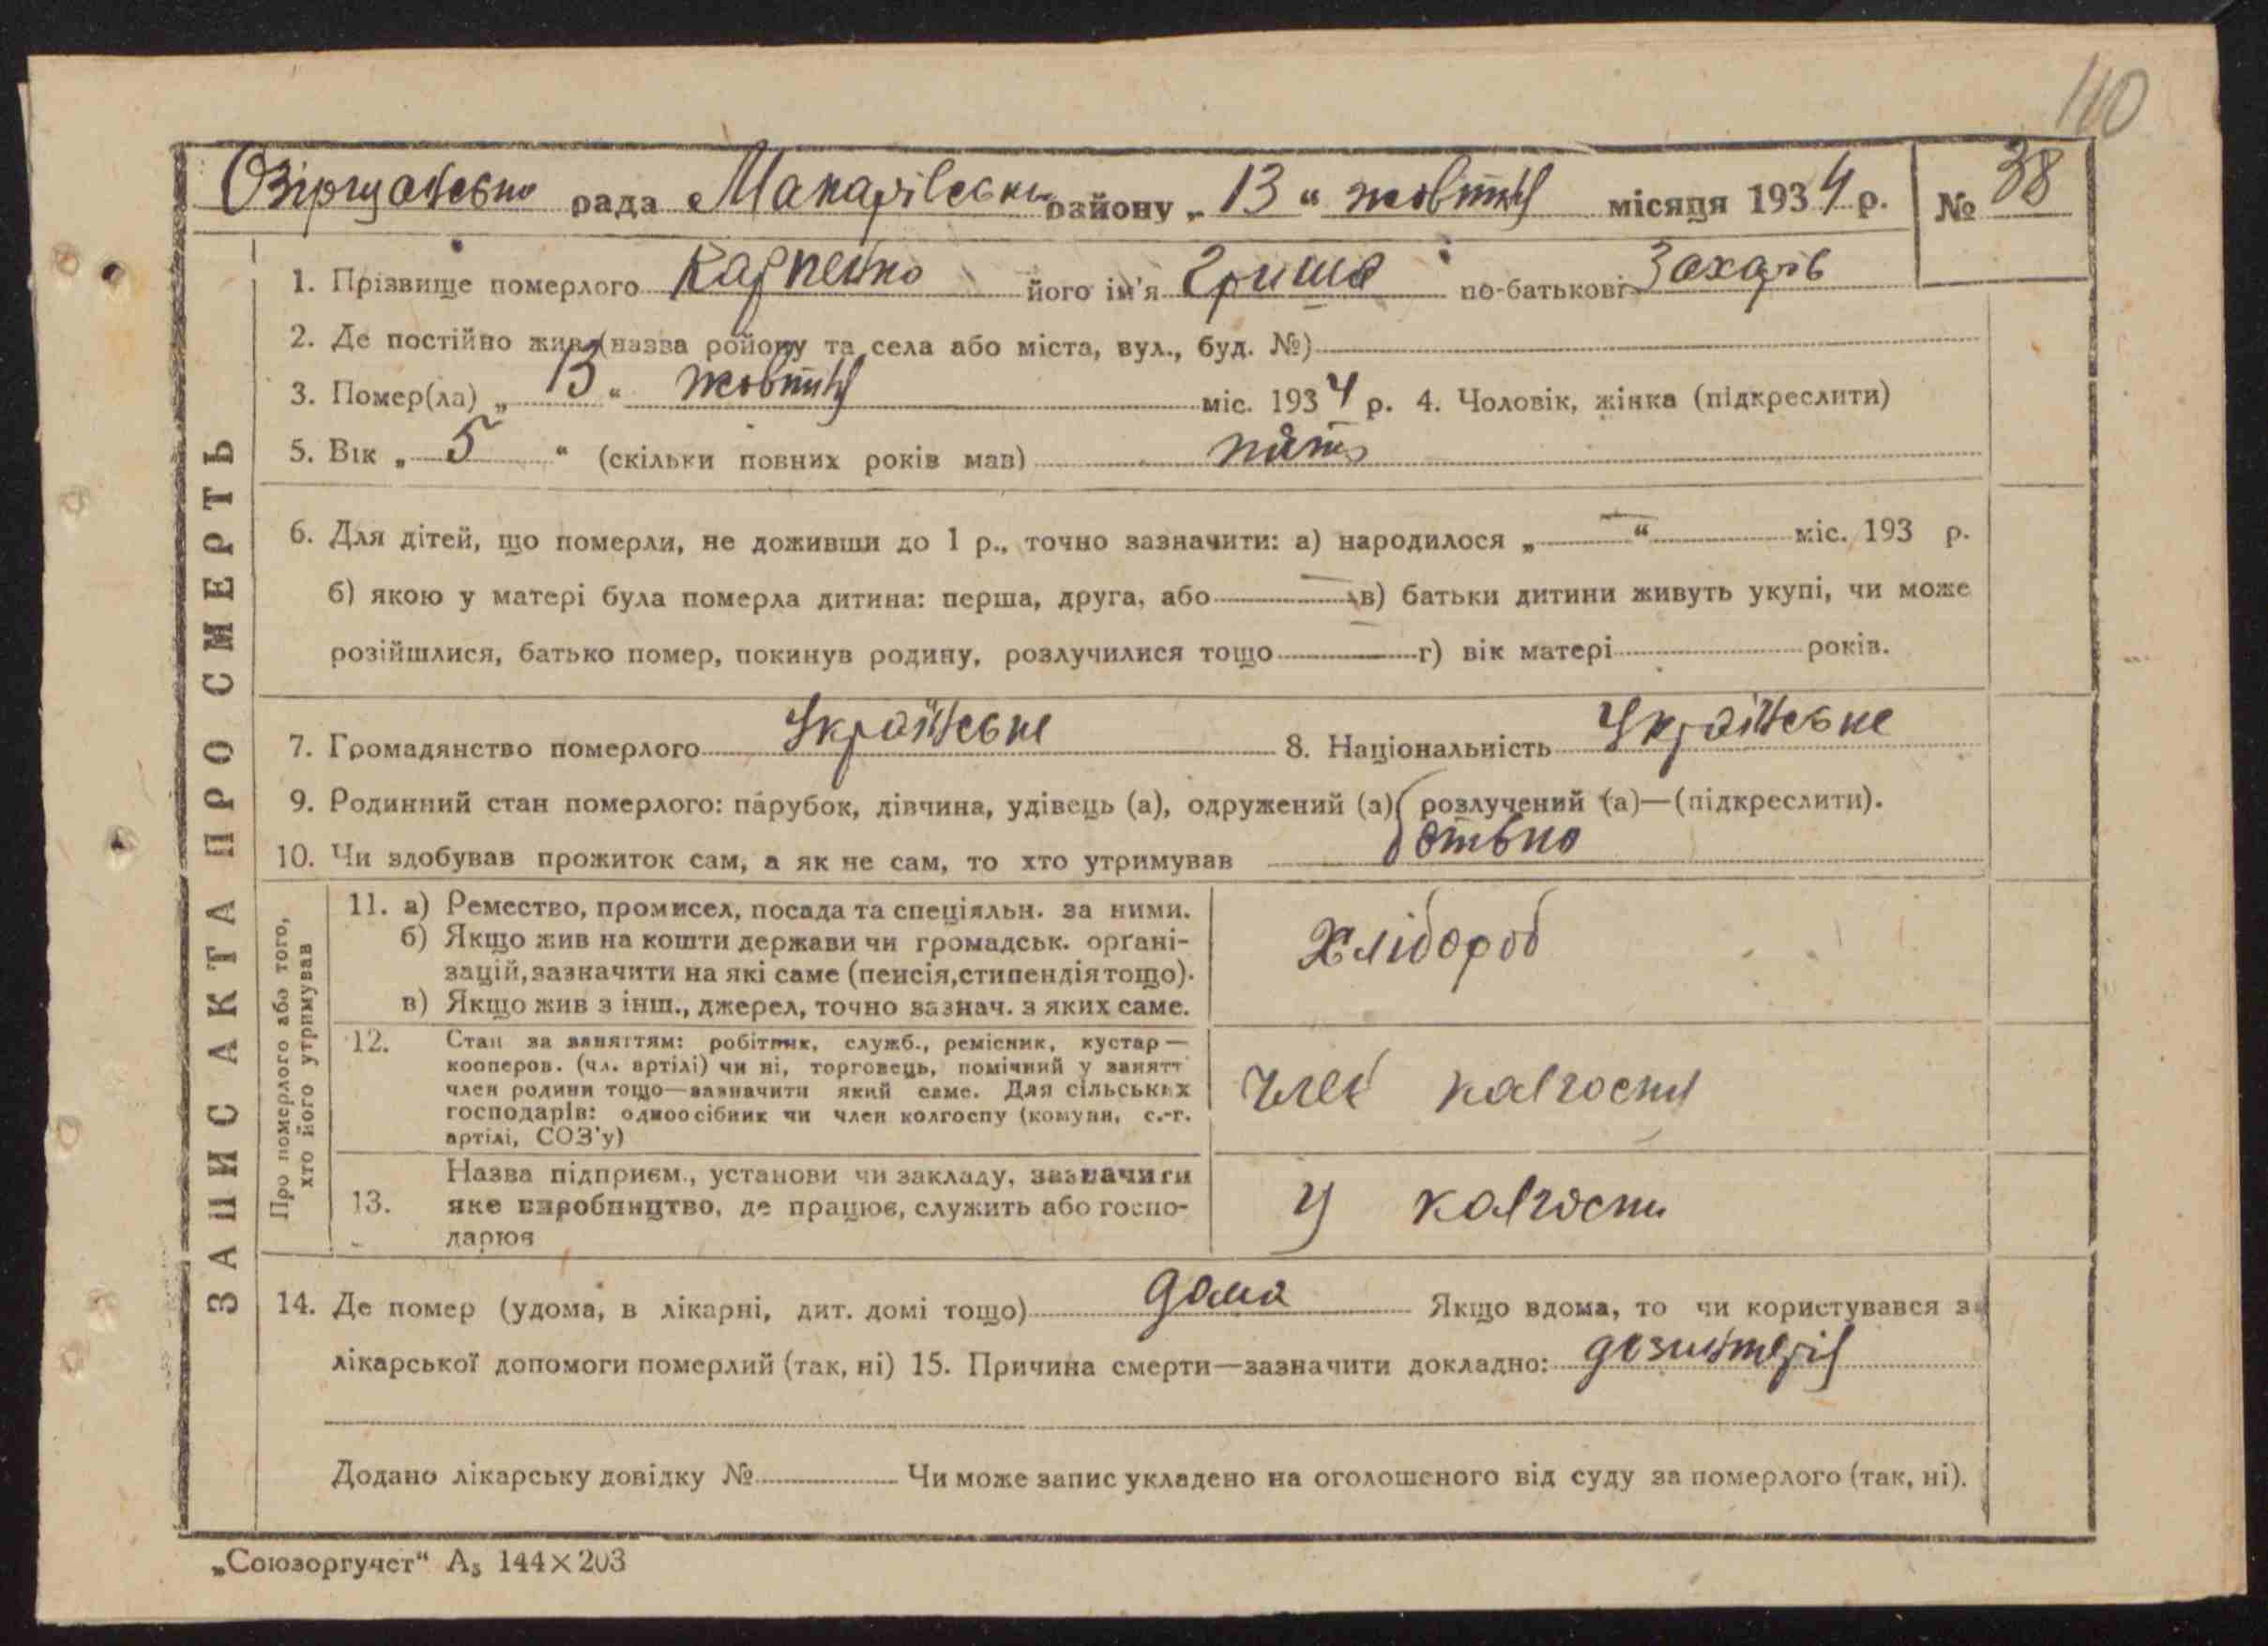 110
Озірщанська рада Макарівського району „13“ жовтня місяця 1934 р. № 38
ЗАПИС АКТА ПРО СМЕРТЬ
1. Прізвище померлого Карпенко його ім'я Гриша по-батькові Захарів
2. Де постійно жив (назва ройону та села або міста, вул., буд. №)
3. Помер(ла) „13“ жовтня міс. 1934 р. 4. Чоловік, жінка (підкреслити)
5. Вік „5“ (скільки повних років мав) пять
6. Для дітей, що померли, не доживши до 1 р., точно зазначити: а) народилося „—“ міс. 193 р.
б) якою у матері була померла дитина: перша, друга, або — в) батьки дитини живуть укупі, чи може
розійшлися, батько помер, покинув родину, розлучилися тощо — г) вік матері років.
7. Громадянство померлого Українське 8. Національність Українське
9. Родинний стан померлого: парубок, дівчина, удівець (а), одружений (а), розлучений (а)—(підкреслити).
10. Чи здобував прожиток сам, а як не сам, то хто утримував батько
Про померлого або того, хто його утримував
11. а) Ремество, промисел, посада та спеціяльн. за ними.
б) Якщо жив на кошти держави чи громадськ. орґані-
зацій, зазначити на які саме (пенсія, стипендія тощо).
в) Якщо жив з інш., джерел, точно зазнач. з яких саме.
Хлібороб
12. Стан за заняттям: робітник, служб., ремісник, кустар—
кооперов. (чл. артілі) чи ні, торговець, помічний у занятт
член родини тощо—зазначити який саме. Для сільських
господарів: одноосібник чи член колгоспу (комуни, с.-г.
артілі, СОЗ'у)
член колгоспу
13. Назва підприєм., установи чи закладу, зазначити
яке виробництво, де працює, служить або госпо-
дарює
у колгоспи
14. Де помер (удома, в лікарні, дит. домі тощо) дома Якщо вдома, то чи користувався з
лікарської допомоги померлий (так, ні) 15. Причина смерти—зазначити докладно: дезинтерія
Додано лікарську довідку № Чи може запис укладено на оголошеного від суду за померлого (так, ні).
„Союзоргучет“ А₅ 144×203